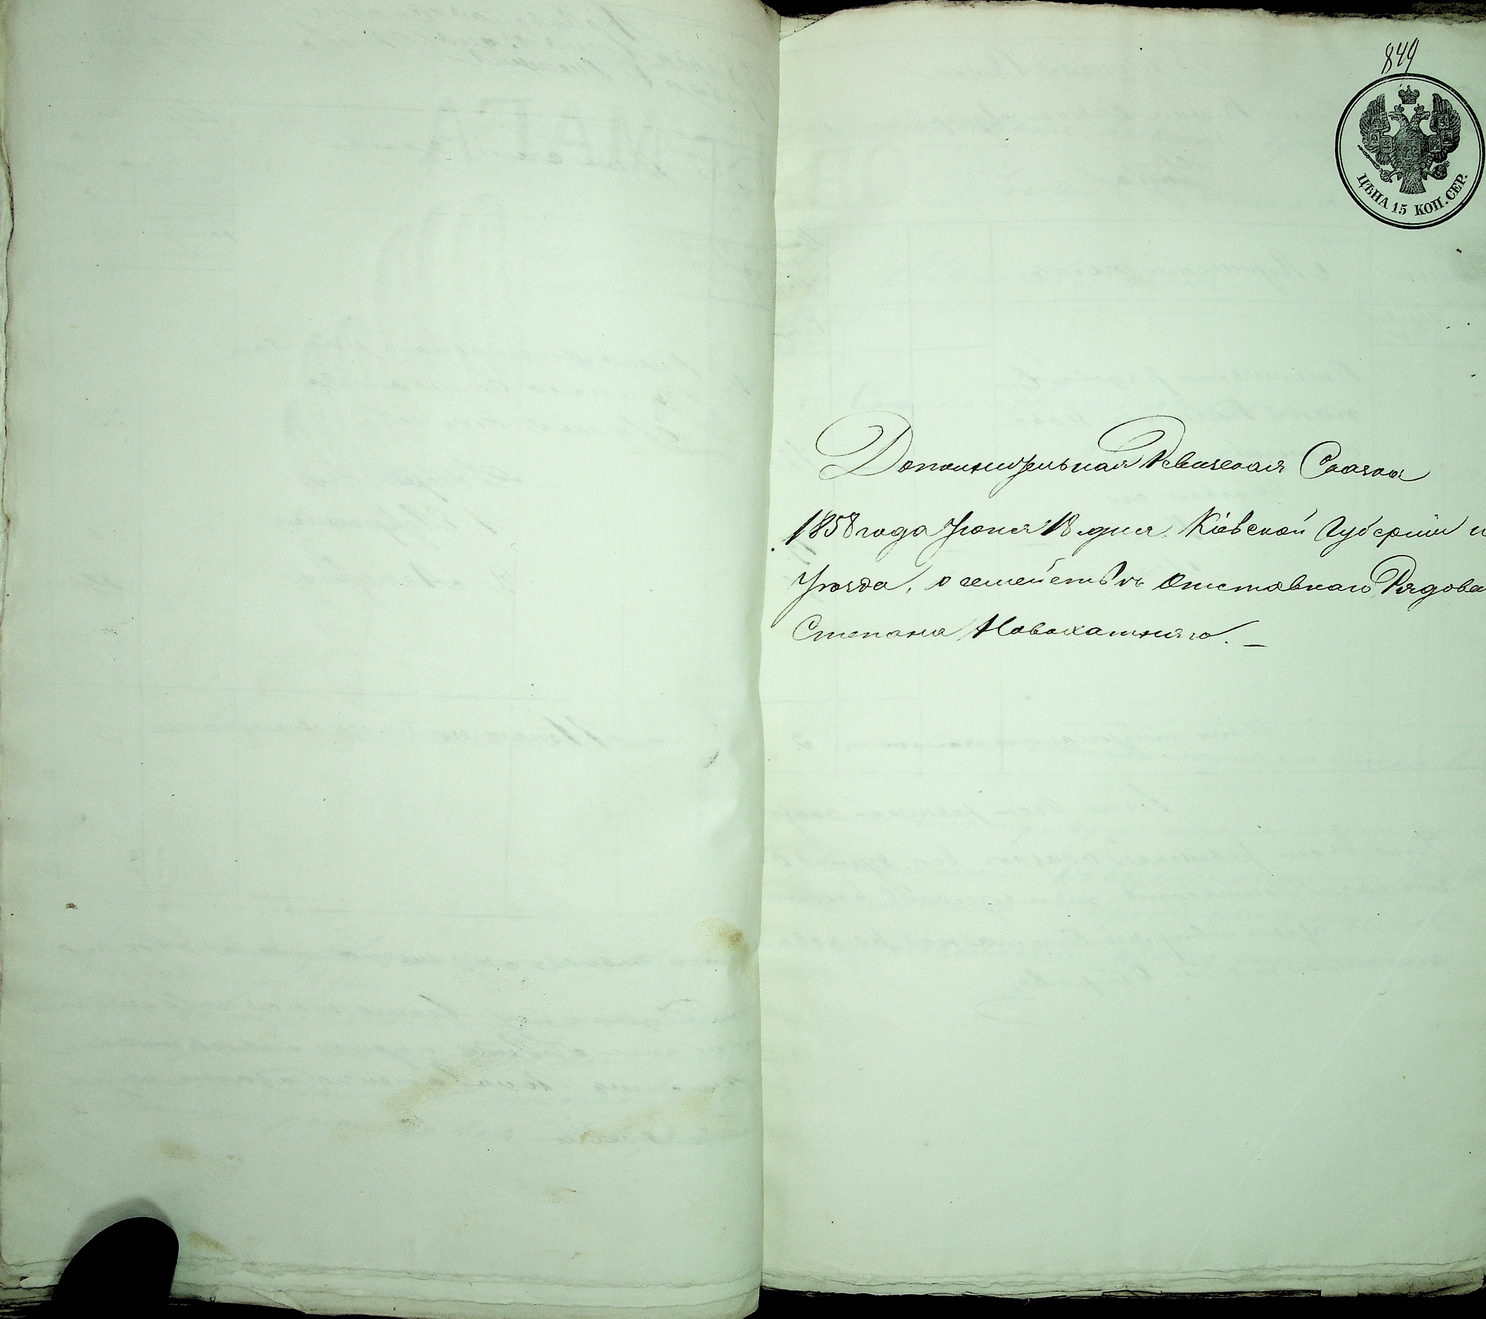 849
ЦѢНА 15 КОП. СЕР.
Дополнительная Ревизская Сказка
1858 года Іюня 18 дня. Кіевской Губерніи и
Уѣзда, о семействѣ Отставнаго Рядова
Степана Новохатняго.